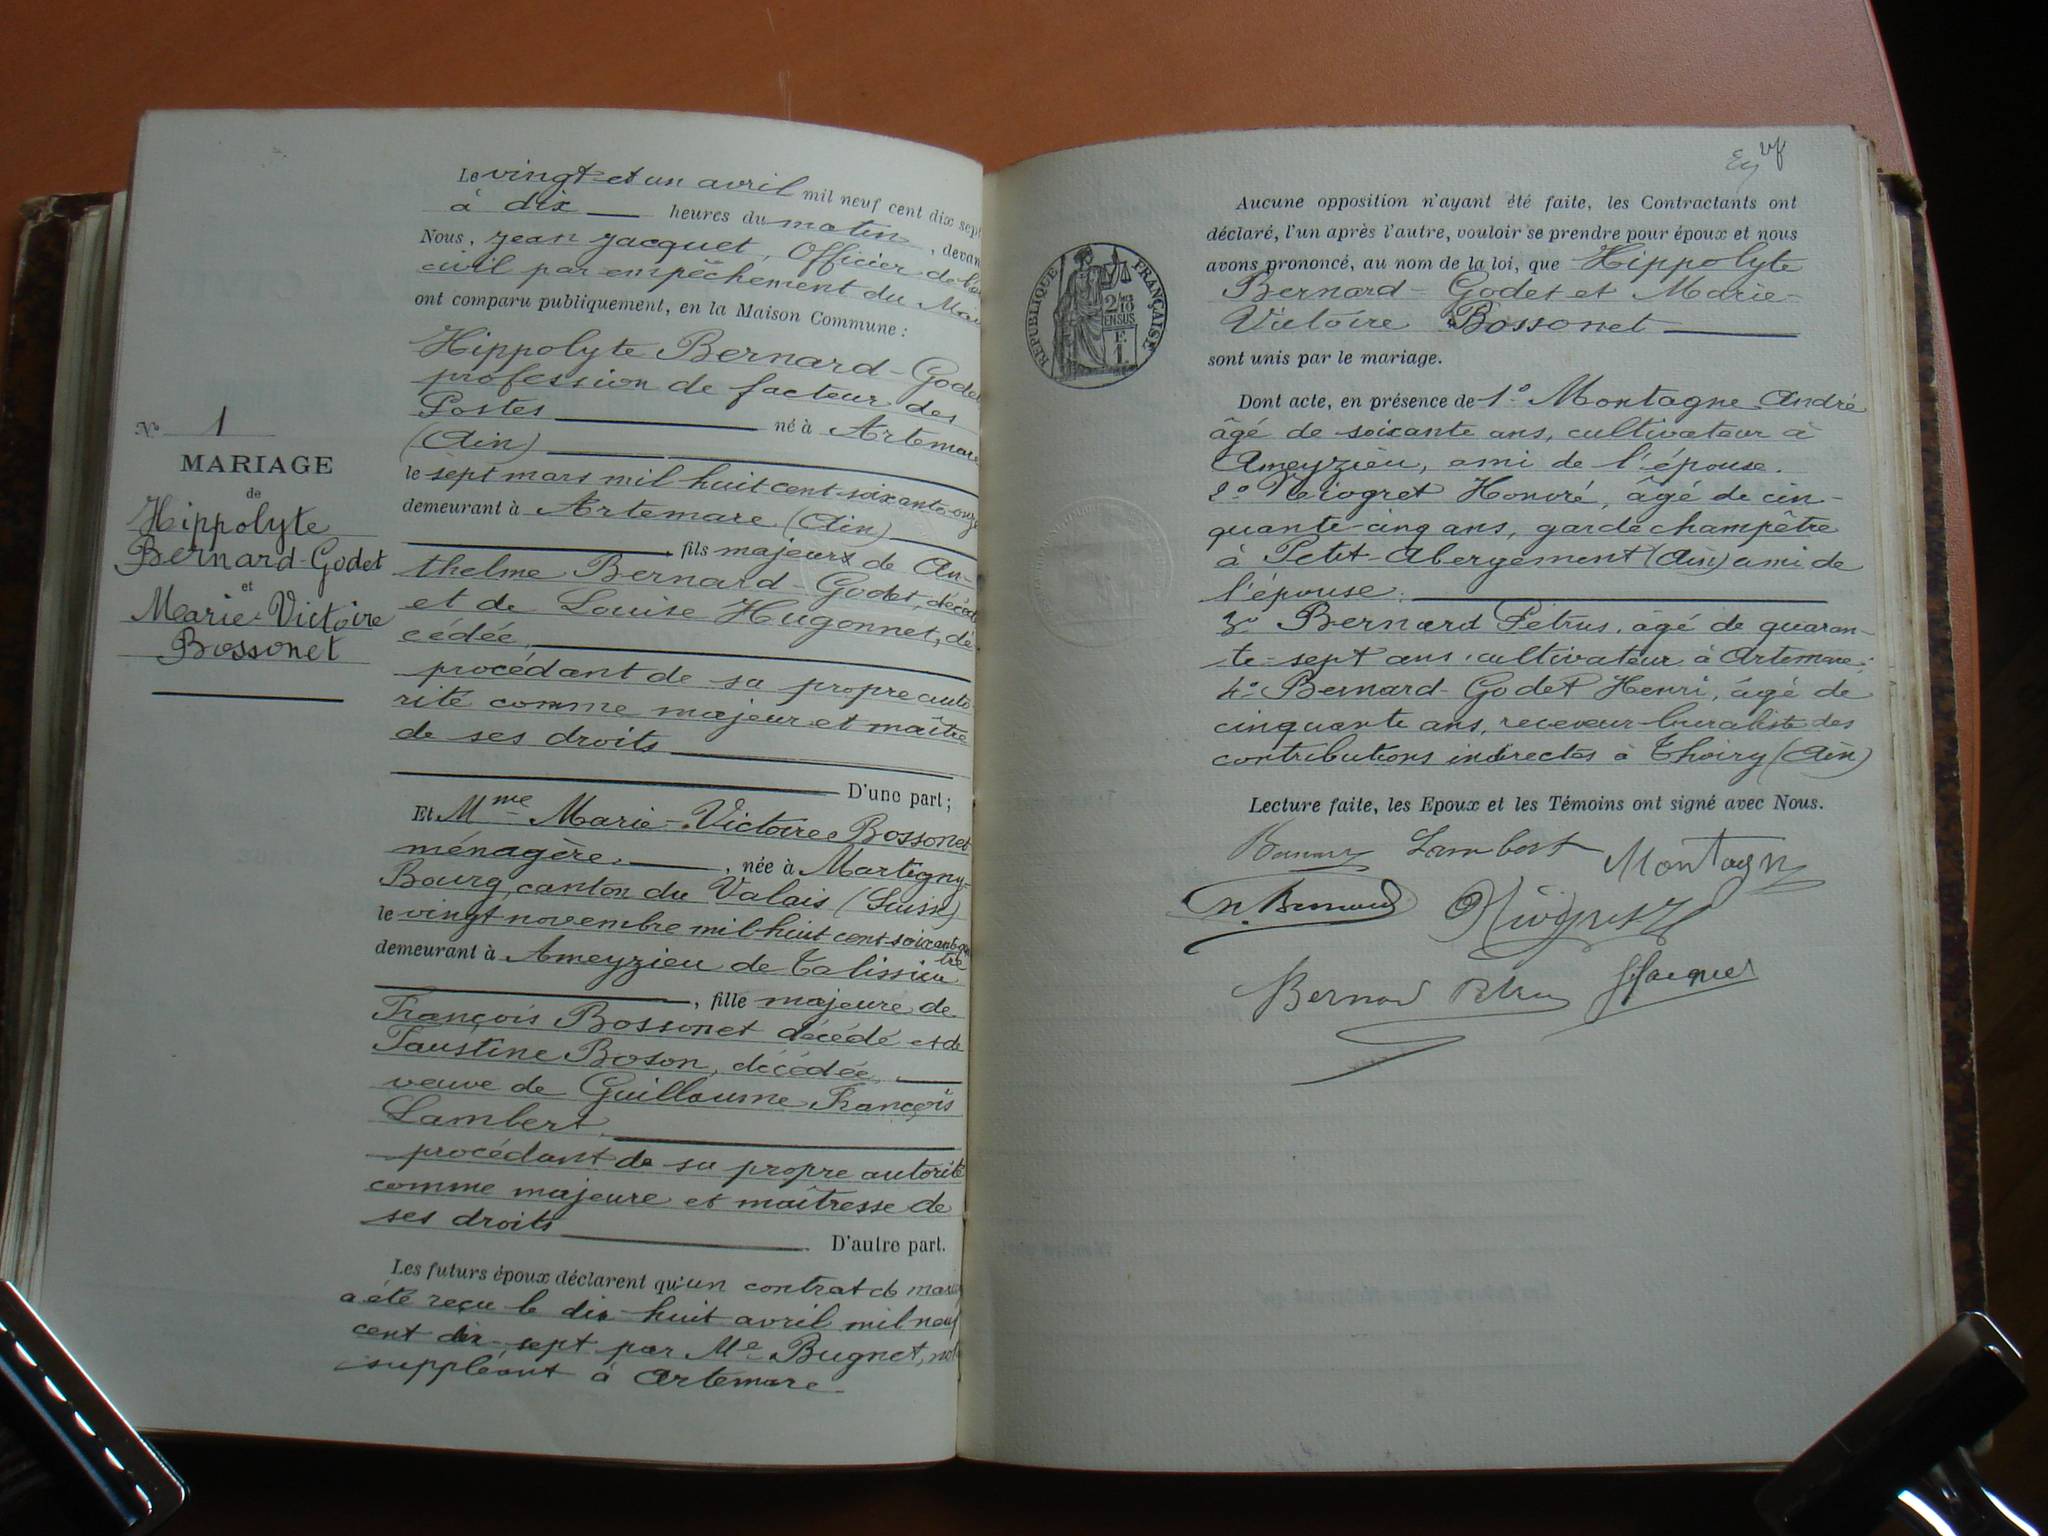 N° 1
MARIAGE
de
Hippolyte
Bernard-Godet
et
Marie-Victoire
Bossonet
Le vingt-et un avril mil neuf cent dix sept
à dix heures du matin, devan
Nous, Jean Jacquet, Officier de l'é
civil par empêchement du Mai
ont comparu publiquement, en la Maison Commune :
Hippolyte Bernard-Godet
profession de facteur des
Postes né à Artemare
(Ain)
le sept mars mil huit cent soixante-onze
demeurant à Artemare (Ain)
fils majeur de An-
thelme Bernard-Godet, décédé
et de Louise Hugonnet, dé-
cédée,
procédant de sa propre auto-
rité comme majeur et maître
de ses droits
D'une part ;
Et Mme Marie-Victoire Bossonet
ménagère, née à Martigny-
Bourg, canton du Valais (Suisse)
le vingt novembre mil huit cent soixante quatre
demeurant à Ameyzieu de Talissieu
, fille majeure de
François Bossonet décédé et de
Faustine Boson, décédée,
veuve de Guillaume François
Lambert
procédant de sa propre autorité
comme majeure et maîtresse de
ses droits
D'autre part.
Les futurs époux déclarent qu'un contrat de maria
a été reçu le dix-huit avril mil neuf
cent dix-sept par Me Bugnet, not
suppléant à Artemare
REPUBLIQUE FRANÇAISE
2/10
EN SUS
F.
1.
Aucune opposition n'ayant été faite, les Contractants ont
déclaré, l'un après l'autre, vouloir se prendre pour époux et nous
avons prononcé, au nom de la loi, que Hippolyte
Bernard-Godet et Marie-
Victoire Bossonet
sont unis par le mariage.
Dont acte, en présence de 1° Montagne André
âgé de soixante ans, cultivateur à
Ameyzieu, ami de l'épouse.
2° Honoré, âgé de cin-
quante-cinq ans, garde champêtre
à Petit-Abergement (Ain) ami de
l'épouse.
3° Bernard Pétrus, âgé de quaran-
te-sept ans, cultivateur à Artemare ;
4° Bernard-Godet Henri, âgé de
cinquante ans, receveur-buraliste des
contributions indirectes à Thoiry (Ain)
Lecture faite, les Epoux et les Témoins ont signé avec Nous.
Lambert Montagne
H. Bernard
Bernard Pétrus JJacquet